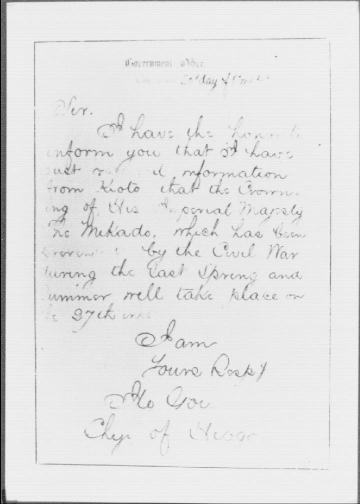 Government Office
Sir.
I have the honor to
inform you that I have
just information
from Kioto that the Crown-
ing of His Imperial Majesty
The Mikado, which has been
by the Civil War
during the last Spring and
Summer will take place on
27th
I am
Yours Respy
Ito
of Hiogo